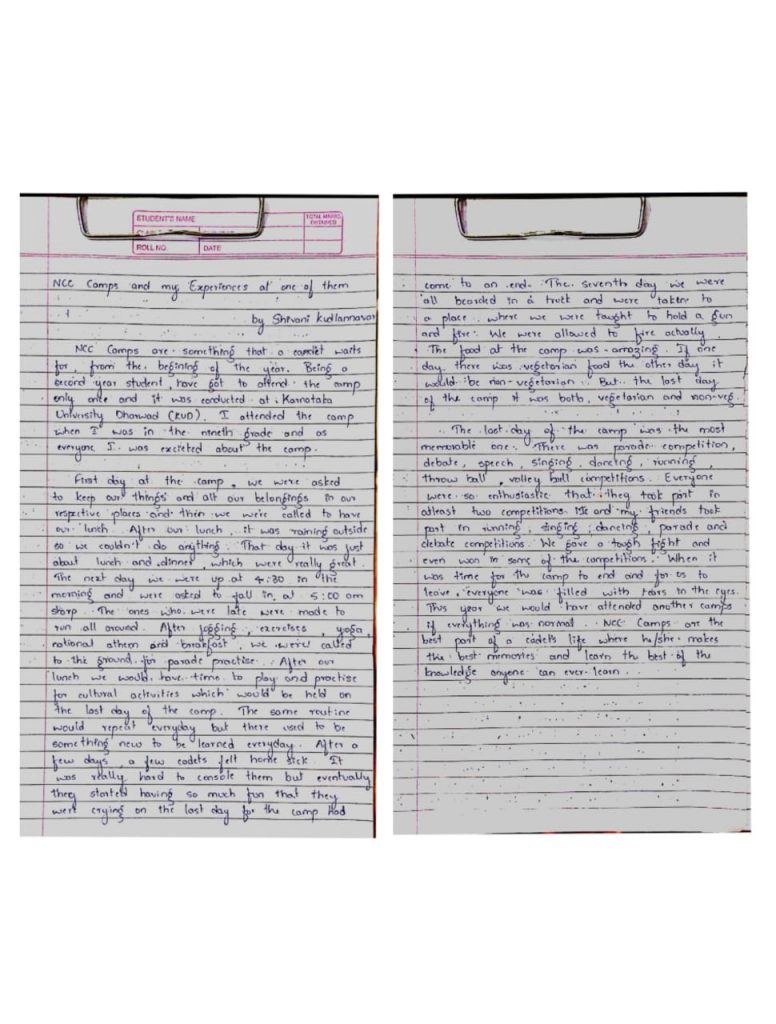 STUDENT'S NAME
TOTAL MARKS
OBTAINED
ROLL NO.
DATE
NCC Camps and my Experiences at one of them
by Shivani Kudlannavar
NCC Camps are something that a candiet waits
for, from the begining of the year. Being a
second year student, have got to attend the camp
only once and it was conducted at Karnataka
University Dharwad (KUD). I attended the camp
when I was in the nineth grade and as
everyone I was excieted about the camp.
First day at the camp, we were asked
to keep our things and all our belongings in our
respective places and then we were called to have
our lunch. After our lunch, it was raining outside
so we couldn't do anything. That day it was just
about lunch and dinner, which were really great.
The next day we were up at 4:30 in the
morning and were asked to fall in at 5:00 am
sharp. The ones who were late were made to
run all around. After jogging, exercises, yoga,
national athem and breakfast, we were called
to the ground for parade practise. After our
lunch we would have time to play and practise
for cultural activities which would be held on
the last day of the camp. The same routine
would repeat everyday but there used to be
something new to be learned everyday. After a
few days, a few cadets fell home sick. It
was really hard to console them but eventually
they started having so much fun that they
were crying on the last day for the camp had
come to an end. The seventh day we were
all boarded in a truck and were taken to
a place where we were taught to hold a gun
and fire. We were allowed to fire actually.
The food at the camp was amazing. If one
day there was vegetarian food the other day it
would be non-vegetarian. But the last day
of the camp it was both, vegetarian and non-veg.
The last day of the camp was the most
memorable one. There was parade competition,
debate, speech, singing, dancing, running,
throw ball, volley ball competitions. Everyone
were so enthusiastic that they took part in
atleast two competitions. Me and my friends took
part in running, singing, dancing, parade and
debate competitions. We gave a tough fight and
even won in some of the competitions. When it
was time for the camp to end and for us to
leave, everyone was filled with tears in the eyes.
This year we would have attended another camps
if everything was normal. NCC Camps are the
best part of a cadets life where he/she makes
the best memories and learn the best of the
knowledge anyone can ever learn.